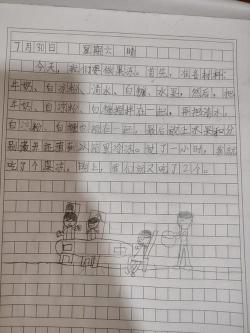 7月30日 星期六 晴
今天，我们要做果冻。首先，准备材料：
牛奶、白凉粉、清水、白糖、水果，然后，把
牛奶、白凉粉、白糖搅拌在一起，再把清水、
白凉粉、白糖也混在一起，最后放上水果和分
别蒸并把蒸放冰箱里冷冻。过了一小时，我就
吃了个果冻，晚上，我们就又喝了12个。